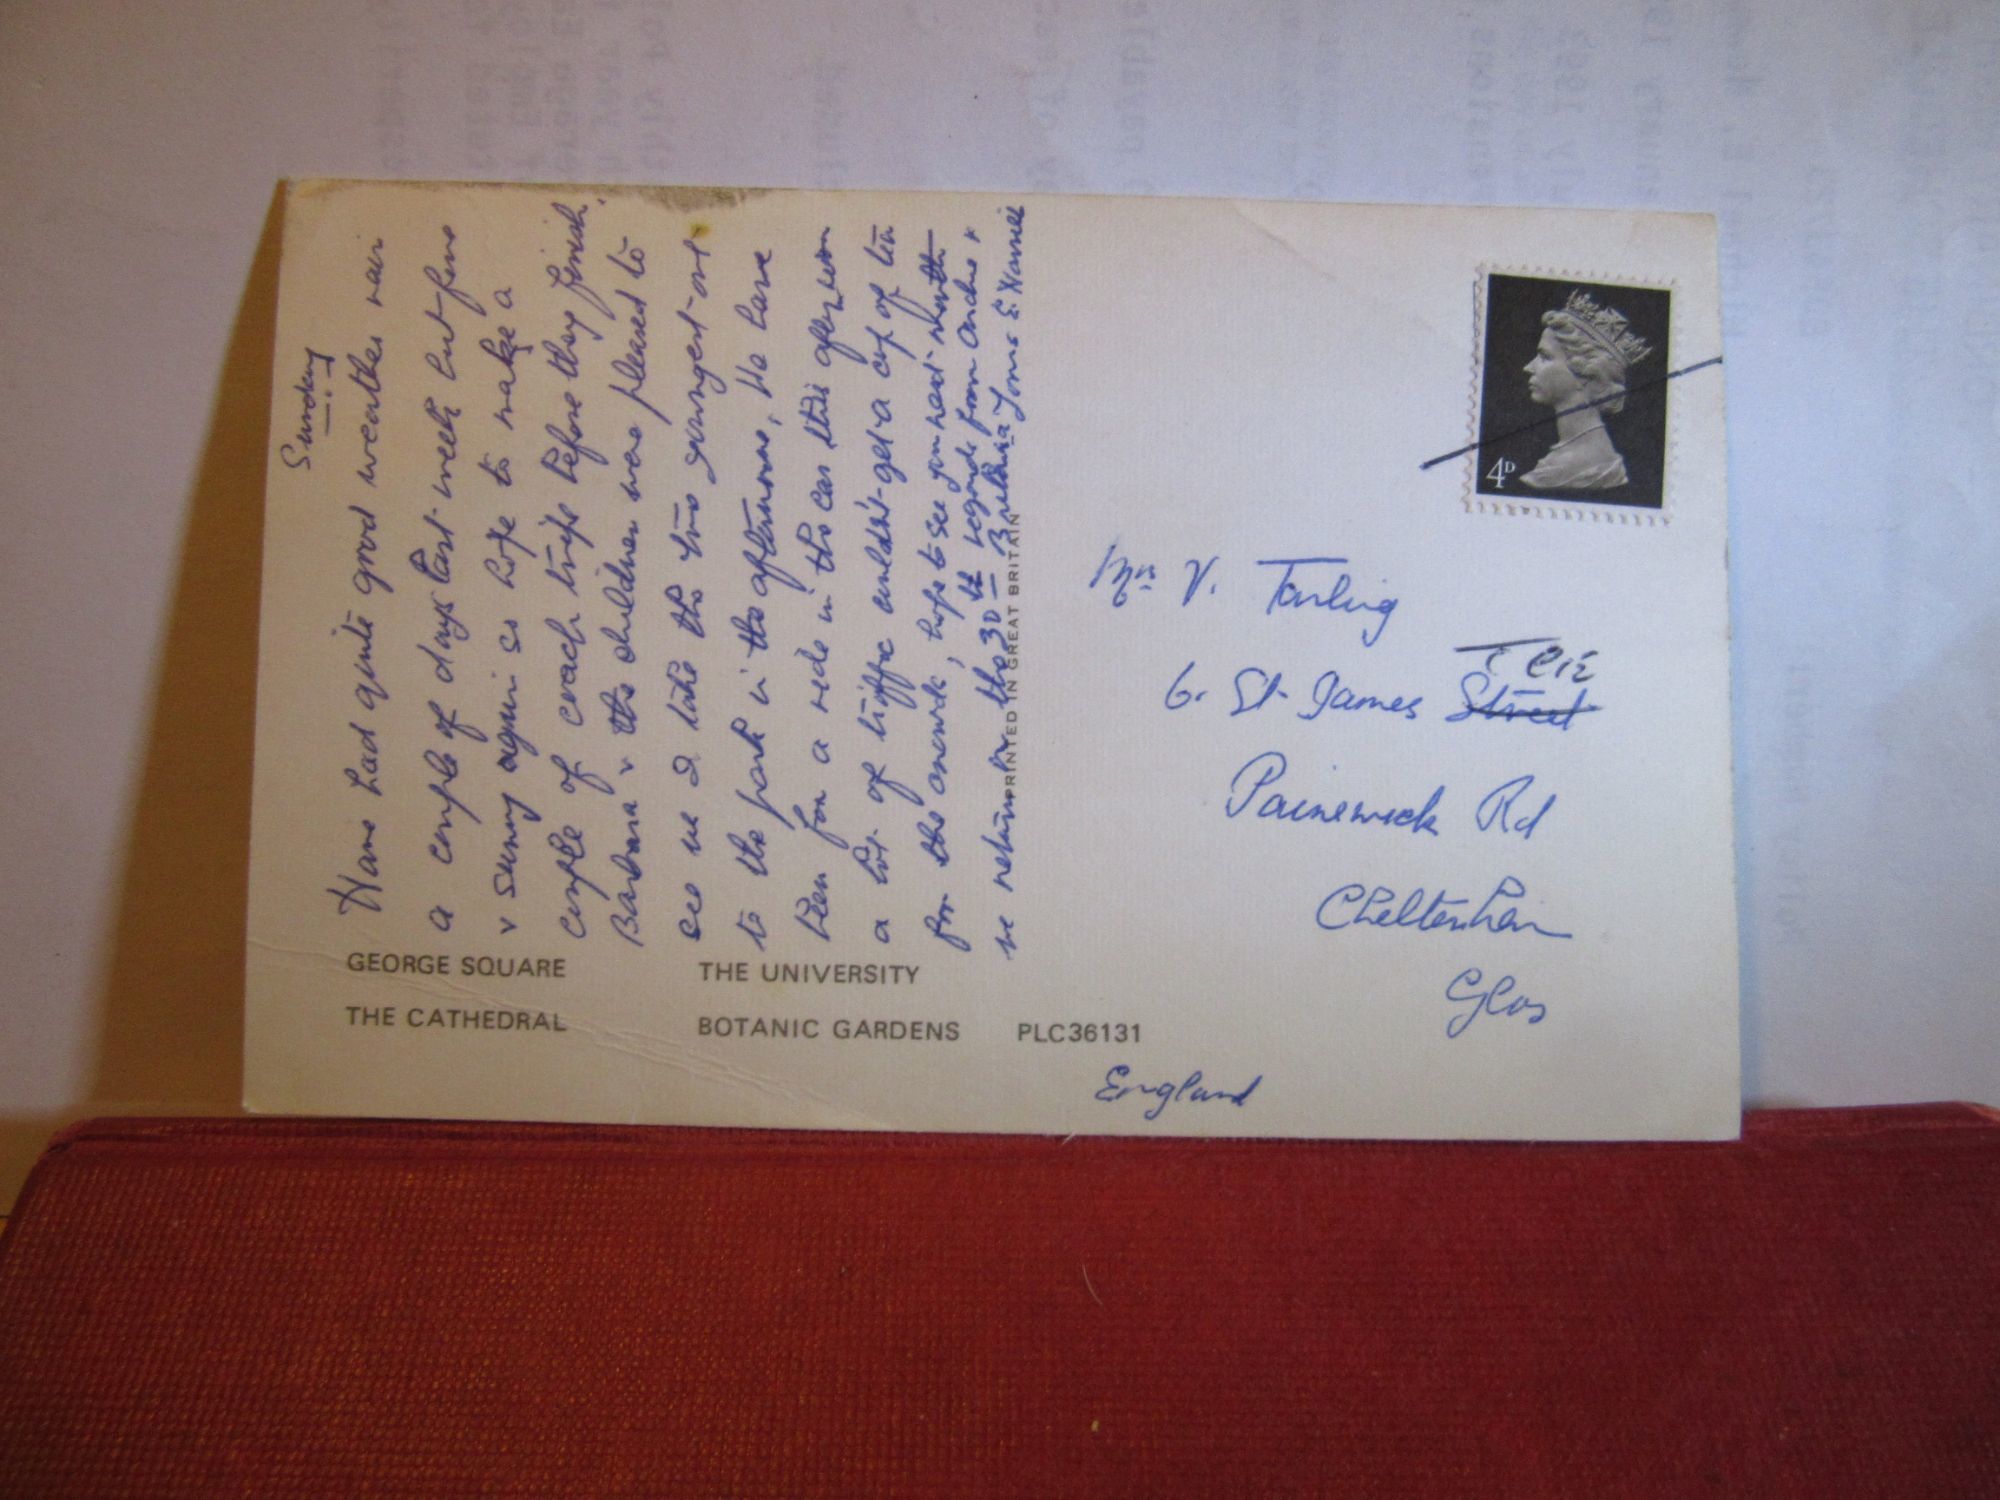 Sunday
Have had quite good weather rain
a couple of days last week but fine
& sunny again so hope to make a
couple of coach trips before they finish.
Barbara & the children were pleased to
see us I take the two youngest out
to the park in the afternoons, We have
been for a ride in the car this afternoon
a lot of traffic couldn't get a cup of tea
for the crowds, hope to see you next month
we return the 30th regards from &
Barbara Yours E
PRINTED IN GREAT BRITAIN
GEORGE SQUARE THE UNIVERSITY
THE CATHEDRAL BOTANIC GARDENS PLC36131
4D
Mrs V. Tarling
6. St James Street
Painswick Rd
Cheltenham
Glos
England